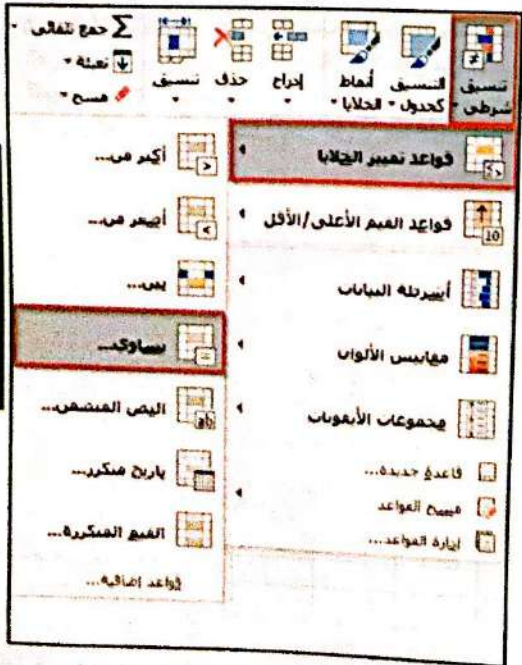 تنسيق شرطي
التنسيق كجدول
أنماط الخلايا
إدراج
حذف
تنسيق
حمع تلقائي
تعبئة
مسح
قواعد تمييز الخلايا
قواعد القيم الأعلى/الأقل
10
أشرطة البيانات
مقاييس الألوان
مجموعات الأيقونات
قاعدة جديدة...
مسح القواعد
إدارة القواعد...
أكبر من...
أصغر من...
بين...
يساوي...
النص المتضمن...
ab
تاريخ متكرر...
القيم المتكررة...
قواعد إضافية...